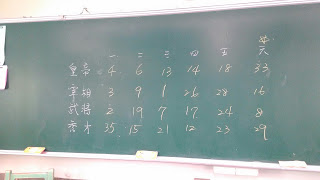 一 二 三 四 五 六
皇帝 4 6 13 14 18 33
宰相 3 9 1 26 28 16
武將 2 19 7 17 24 8
秀才 35 15 21 12 23 29